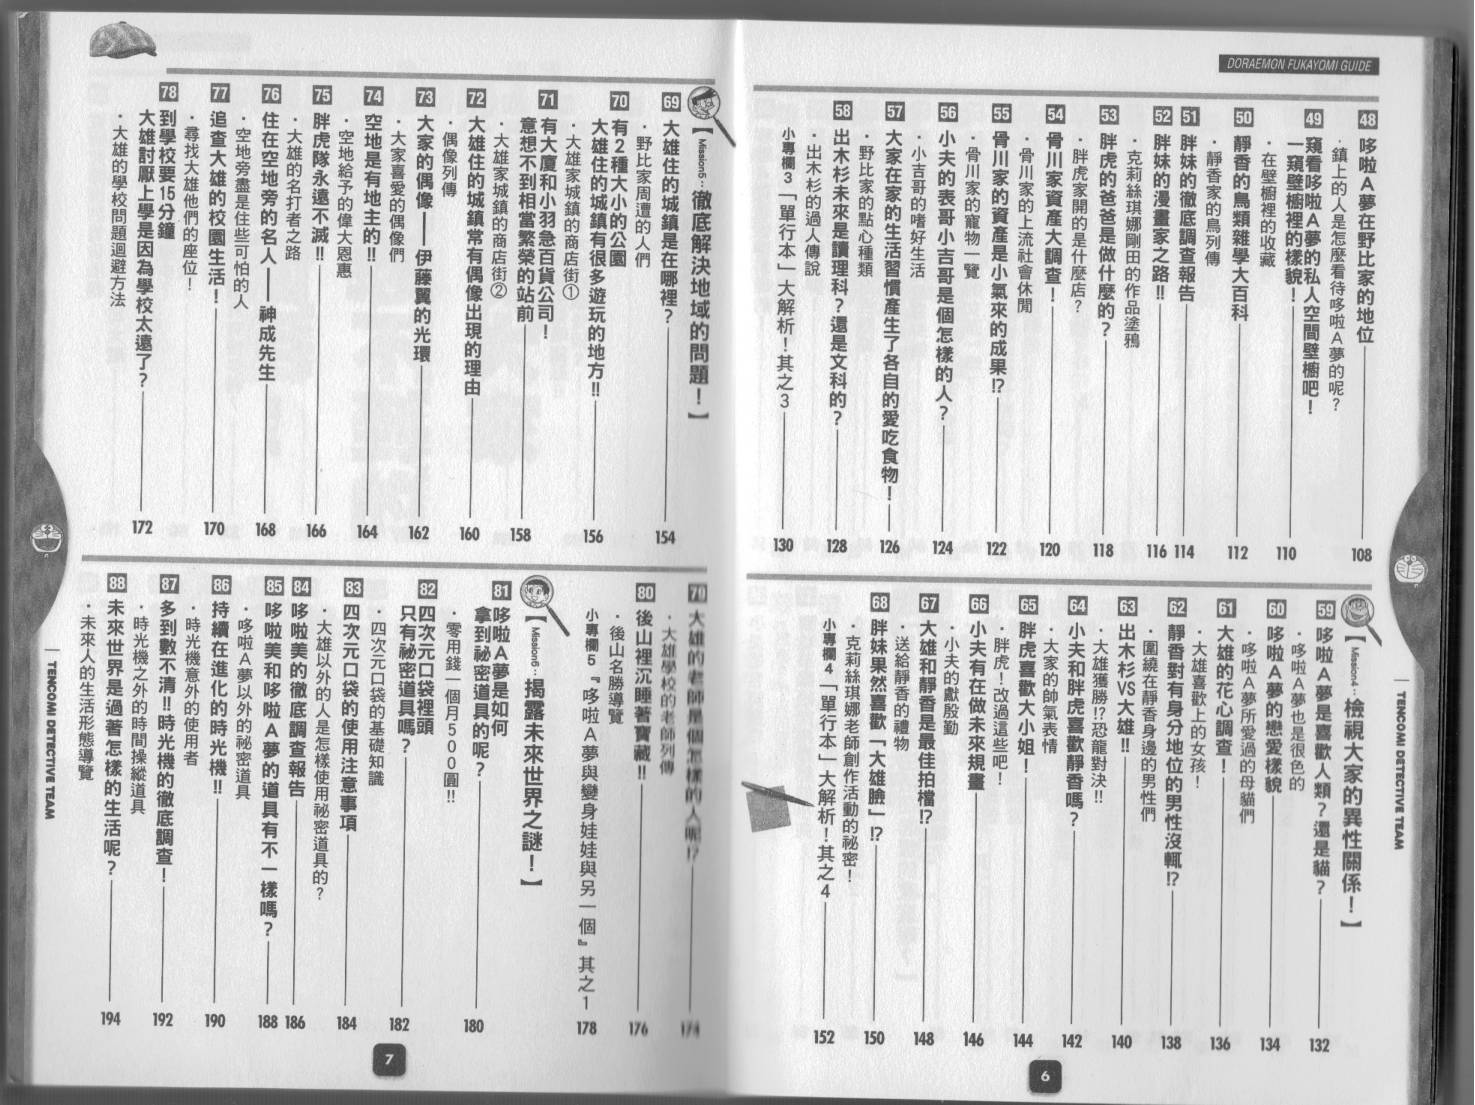 DORAEMON FUKAYOMI GUIDE
48 哆啦A夢在野比家的地位 108
・鎮上的人是怎麼看待哆啦A夢的呢?
49 窺看哆啦A夢的私人空間壁櫥吧!
一窺壁櫥裡的樣貌! 110
・在壁櫥裡的收藏
50 靜香的鳥類雜學大百科 112
・靜香家的鳥列傳
51 胖妹的徹底調查報告 114
52 胖妹的漫畫家之路!! 116
・克莉絲琪娜剛田的作品塗鴉
53 胖虎的爸爸是做什麼的? 118
・胖虎家開的是什麼店?
54 骨川家資產大調查! 120
・骨川家的上流社會休閒
55 骨川家的資產是小氣來的成果!? 122
・骨川家的寵物一覽
56 小夫的表哥小吉哥是個怎樣的人? 124
・小吉哥的嗜好生活
57 大家在家的生活習慣產生了各自的愛吃食物! 126
・野比家的點心種類
58 出木杉未來是讀理科?還是文科的? 128
・出木杉的過人傳說
小專欄3「單行本」大解析!其之3 130
【Mission4:檢視大家的異性關係!】
59 哆啦A夢是喜歡人類?還是貓? 132
・哆啦A夢也是很色的
60 哆啦A夢的戀愛樣貌 134
・哆啦A夢所愛過的母貓們
61 大雄的花心調查! 136
・大雄喜歡上的女孩!
62 靜香對有身分地位的男性沒輒!? 138
・圍繞在靜香身邊的男性們
63 出木杉VS大雄!! 140
・大雄獲勝!?恐龍對決!!
64 小夫和胖虎喜歡靜香嗎? 142
・大家的帥氣表情
65 胖虎喜歡大小姐! 144
・胖虎!改過這些吧!
66 小夫有在做未來規畫 146
・小夫的獻殷勤
67 大雄和靜香是最佳拍檔!? 148
・送給靜香的禮物
68 胖妹果然喜歡「大雄臉」!? 150
・克莉絲琪娜老師創作活動的祕密!
小專欄4「單行本」大解析!其之4 152
TENCOMI DETECTIVE TEAM
6
【Mission5:徹底解決地域的問題!】
69 大雄住的城鎮是在哪裡? 154
・野比家周遭的人們
70 有2種大小的公園
大雄住的城鎮有很多遊玩的地方!! 156
・大雄家城鎮的商店街①
71 有大廈和小羽急百貨公司!
意想不到相當繁榮的站前 158
・大雄家城鎮的商店街②
72 大雄住的城鎮常有偶像出現的理由 160
・偶像列傳
73 大家的偶像——伊藤翼的光環 162
・大家喜愛的偶像們
74 空地是有地主的!! 164
・空地給予的偉大恩惠
75 胖虎隊永遠不滅!! 166
・大雄的名打者之路
76 住在空地旁的名人——神成先生 168
・空地旁盡是住些可怕的人
77 追查大雄的校園生活! 170
・尋找大雄他們的座位!
78 到學校要15分鐘
大雄討厭上學是因為學校太遠了? 172
・大雄的學校問題迴避方法
79 大雄的老師是個怎樣的人呢!? 174
・大雄學校的老師列傳
80 後山裡沉睡著寶藏!! 176
・後山名勝導覽
小專欄5『哆啦A夢與變身娃娃與另一個』其之1 178
【Mission6:揭露未來世界之謎!】
81 哆啦A夢是如何
拿到祕密道具的呢? 180
・零用錢一個月500圓!!
82 四次元口袋裡頭
只有祕密道具嗎? 182
・四次元口袋的基礎知識
83 四次元口袋的使用注意事項 184
・大雄以外的人是怎樣使用祕密道具的?
84 哆啦美的徹底調查報告 186
85 哆啦美和哆啦A夢的道具有不一樣嗎? 188
・哆啦A夢以外的祕密道具
86 持續在進化的時光機!! 190
・時光機意外的使用者
87 多到數不清!!時光機的徹底調查! 192
・時光機之外的時間操縱道具
88 未來世界是過著怎樣的生活呢? 194
・未來人的生活形態導覽
TENCOMI DETECTIVE TEAM
7